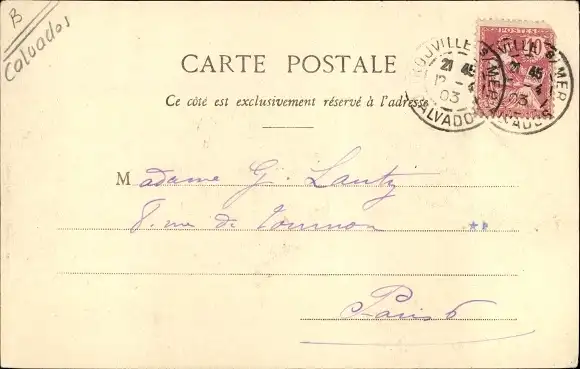 B
Calvados
CARTE POSTALE
Ce côté est exclusivement réservé à l'adresse
POSTES
10
TROUVILLE S/ MER
21 45
12 - 4
03
CALVADOS
VILLE S/ MER
45
03
CALVADOS
Madame G. Lantz
8. rue de Tournon
Paris 6